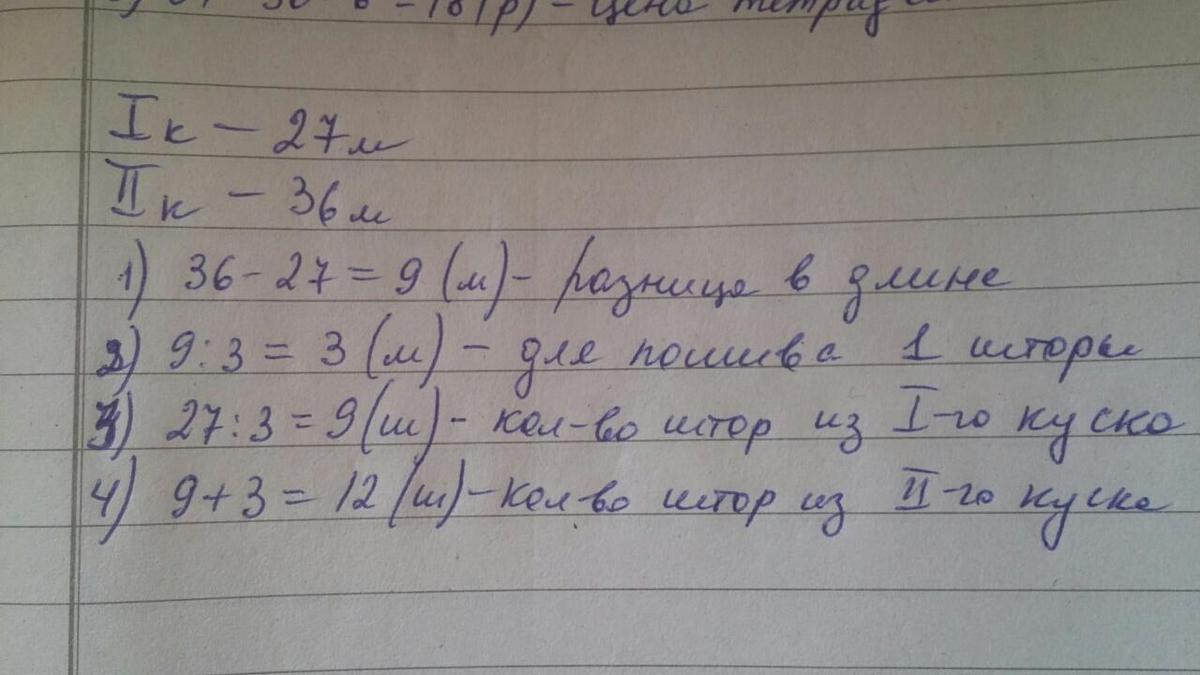 = 18 (р) - цена тетрад
I к - 27 м
II к - 36 м
1) 36 - 27 = 9 (м) - разница в длине
2) 9 : 3 = 3 (м) - для пошива 1 шторы
3) 27 : 3 = 9 (ш) - кол-во штор из I-го куска
4) 9 + 3 = 12 (ш) - кол-во штор из II-го куска